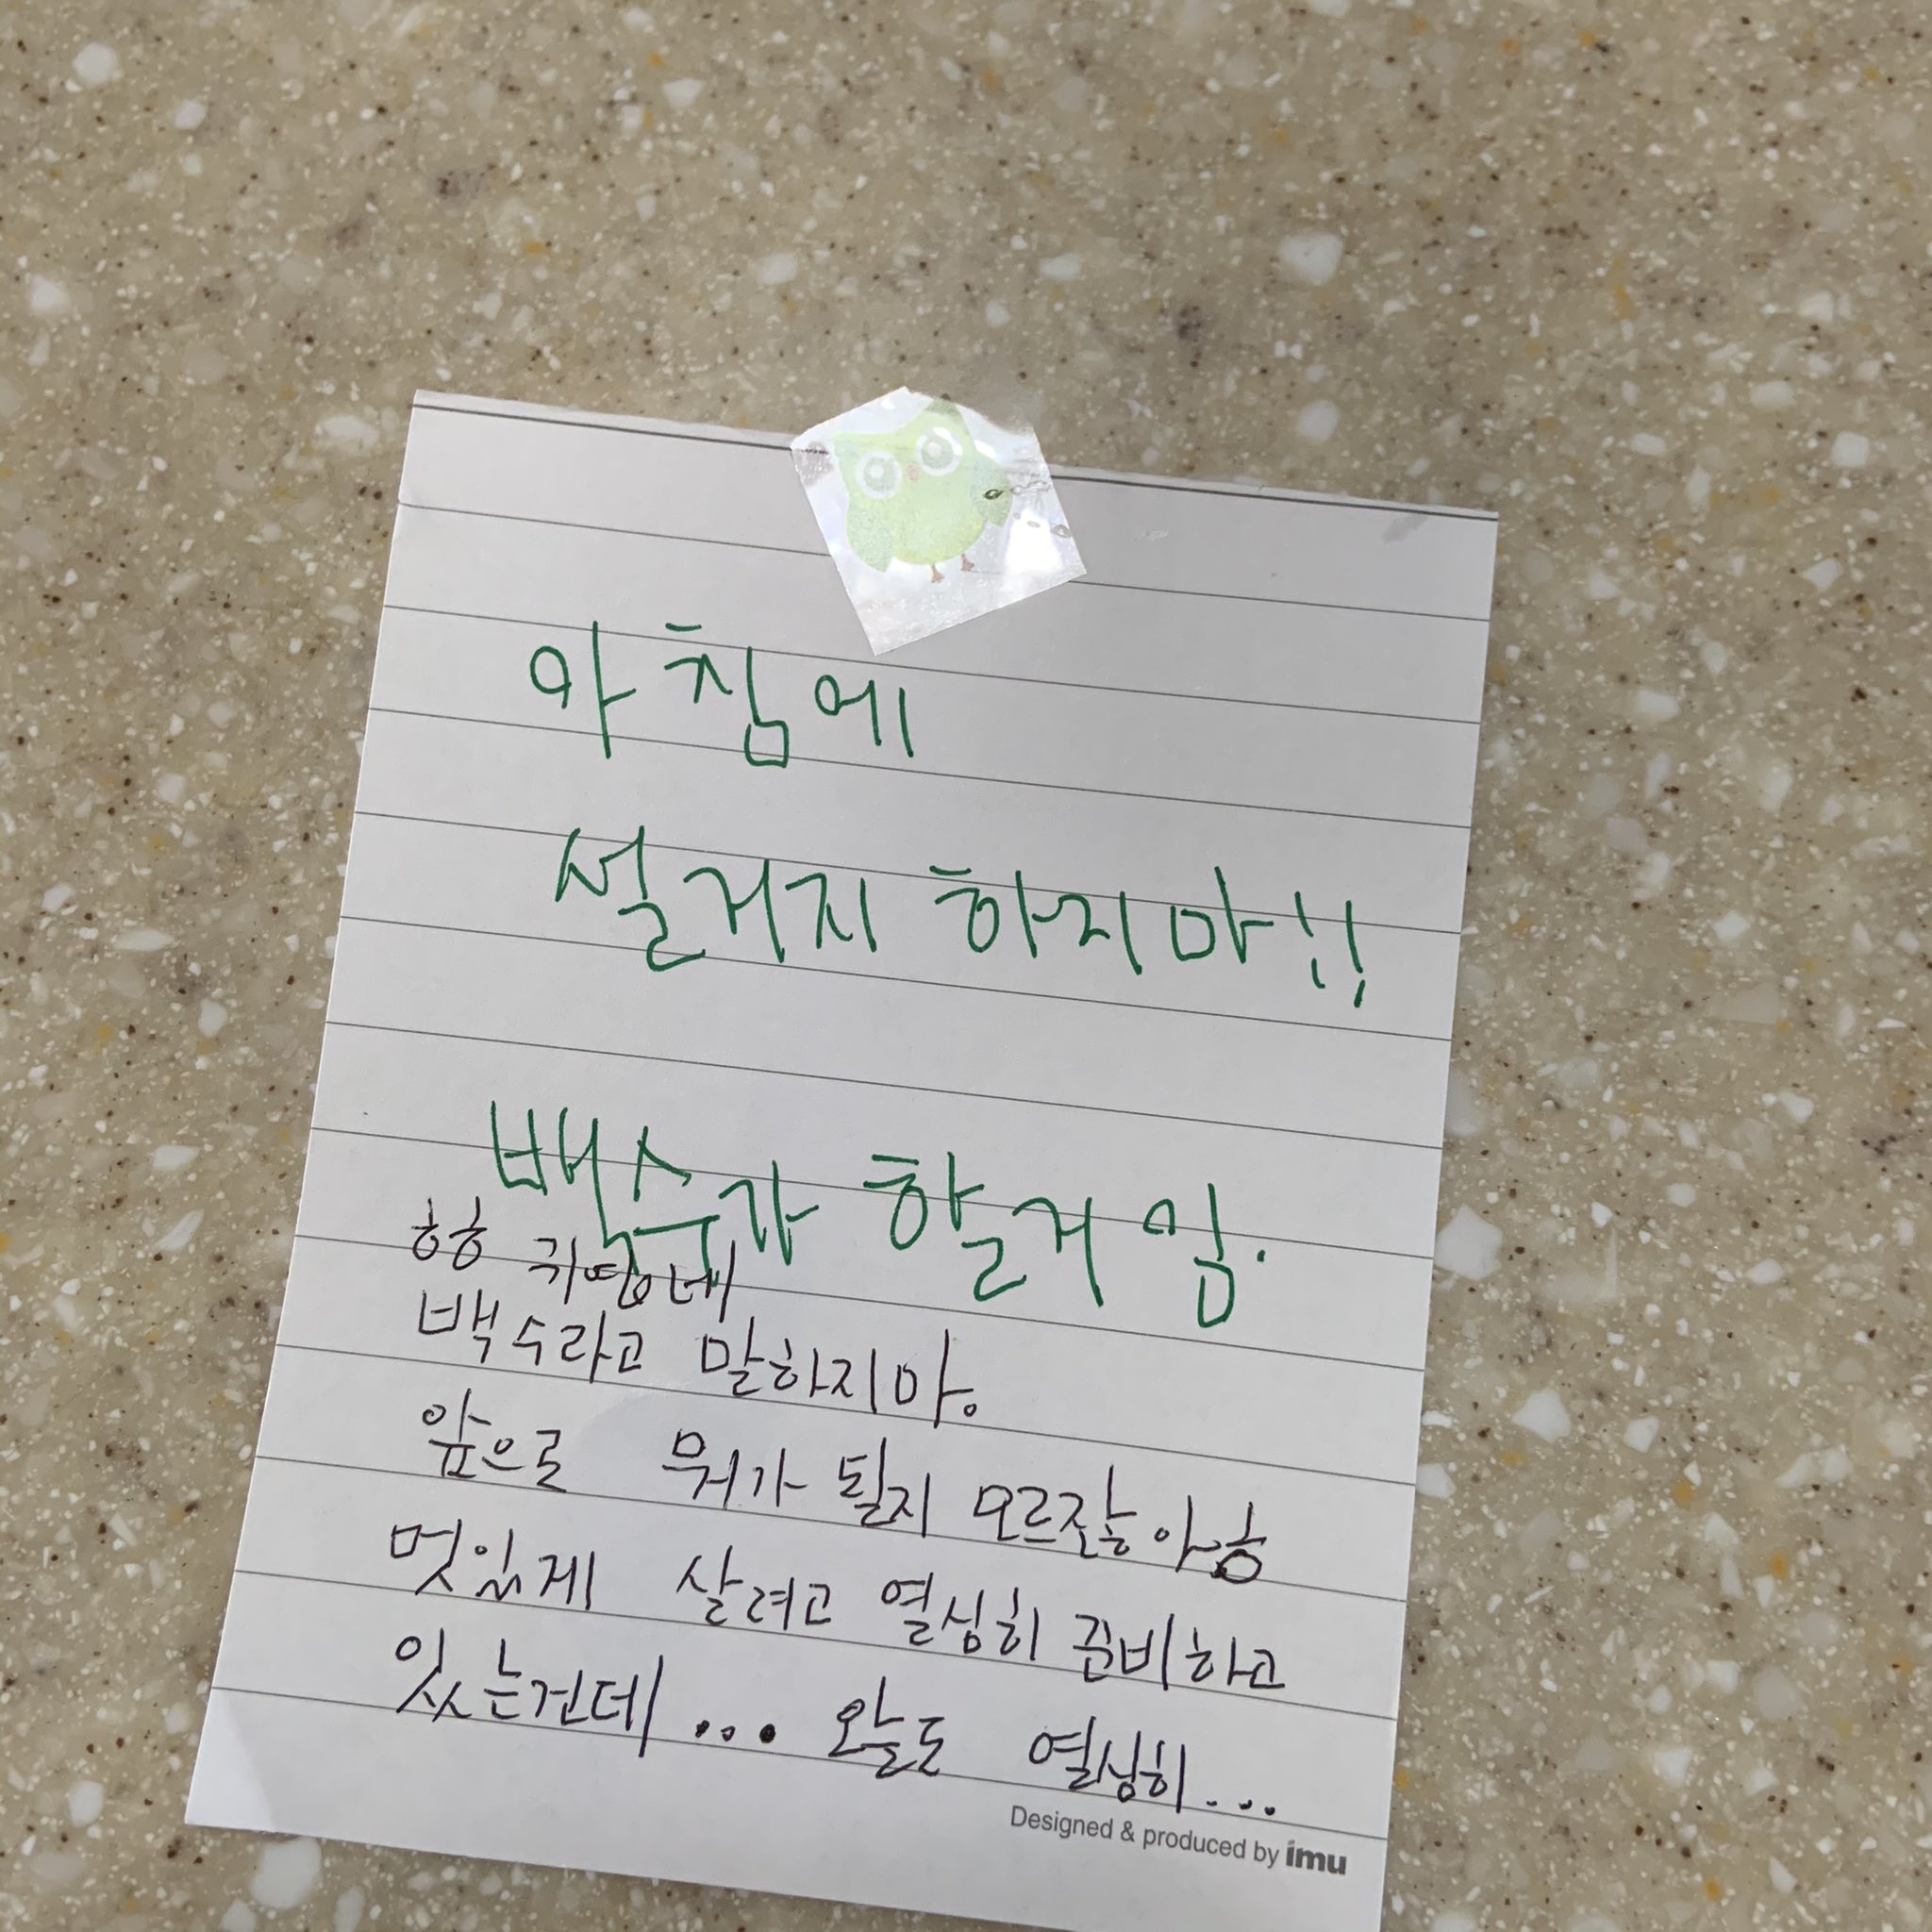 아침에
설거지 하지마!!
백수가 할거임.
흥흥 귀엽네
백수라고 말하지마.
앞으로 뭐가 될지 모르잖아흥
멋있게 살려고 열심히 준비하고
있는건데... 오늘도 열심히...
Designed & produced by imu